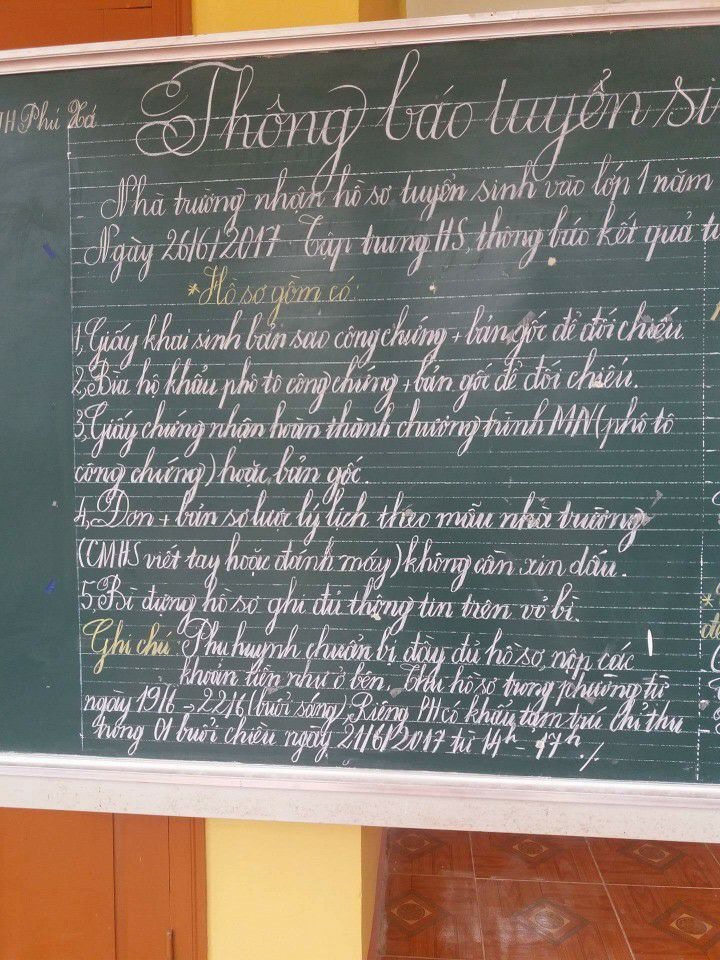 TH Phú Xá
Thông báo tuyển si
- Nhà trường nhận hồ sơ tuyển sinh vào lớp 1 năm
- Ngày 26/6/2017 Tập trung HS, thông báo kết quả t
*Hồ sơ gồm có:
1, Giấy khai sinh bản sao công chứng + bản gốc để đối chiếu.
2, Bìa hộ khẩu phô tô công chứng + bản gốc để đối chiếu.
3, Giấy chứng nhận hoàn thành chương trình MN (phô tô
công chứng) hoặc bản gốc.
4, Đơn + bản sơ lược lý lịch theo mẫu nhà trường
(CMHS viết tay hoặc đánh máy) không cần xin dấu.
5, Bì đựng hồ sơ ghi đủ thông tin trên vỏ bì.
Ghi chú: Phụ huynh chuẩn bị đầy đủ hồ sơ, nộp các
khoản tiền như ở bên. Thu hồ sơ trong phường từ
ngày 19/6 → 22/6 (buổi sáng). Riêng PH có khẩu tạm trú chỉ thu
trong 01 buổi chiều ngày 21/6/2017 từ 14h - 17h ./.